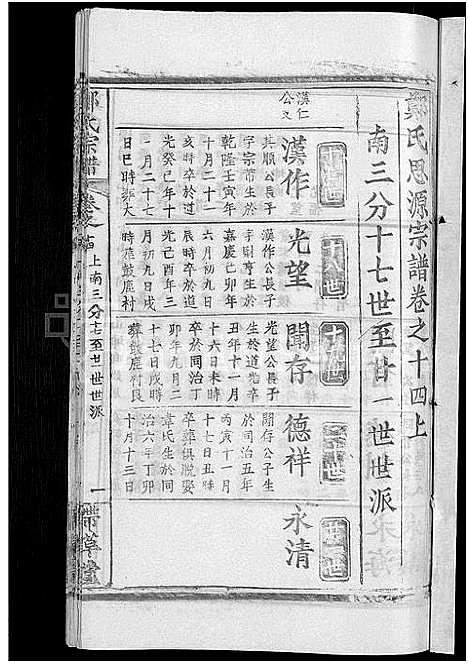 鄭氏思源宗譜卷之十四上
南三分十七世至廿一世世派
十七世
十八世
十九世
二十世
廿一世
漢仁
公文
漢作
其順公長子
字宗蕭生於
乾隆壬寅年
十月二十一
亥時卒於道
光癸巳年十
一月二十七
日巳時葬大
光望
漢作公長子
字財有生於
嘉慶己卯年
六月初九日
時卒於道
光己酉年三
月初九日戌
時葬鼓鹿村
聞存
光望公長子
生於道光辛
丑年十一月
十六日未時
卒於同治丁
卯年九月二
十七日戌時
葬鼓鹿村艮
德祥
聞存公子生
於同治五年
丙寅十一月
十七日丑時
卒葬俱脫娶
韋氏生於同
治六年丁卯
十月十三日
永清
鄭氏宗譜
卷之十四
上南三分十七至廿一世世派
一
帶草堂